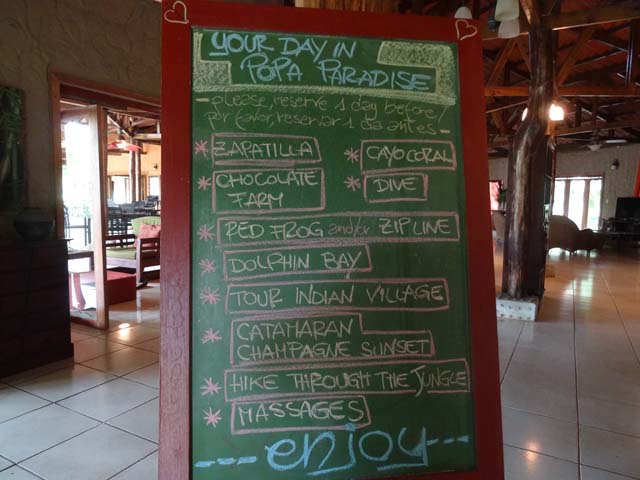 YOUR DAY IN
POPA PARADISE
- please, reserve 1 day before/
por favor, reservar 1 dia antes -
* ZAPATILLA * CAYO CORAL
* CHOCOLATE FARM * DIVE
* RED FROG and/or ZIPLINE
* DOLPHIN BAY
* TOUR INDIAN VILLAGE
* CATAMARAN
CHAMPAGNE SUNSET
* HIKE THROUGH THE JUNGLE
* MASSAGES
--- enjoy ---